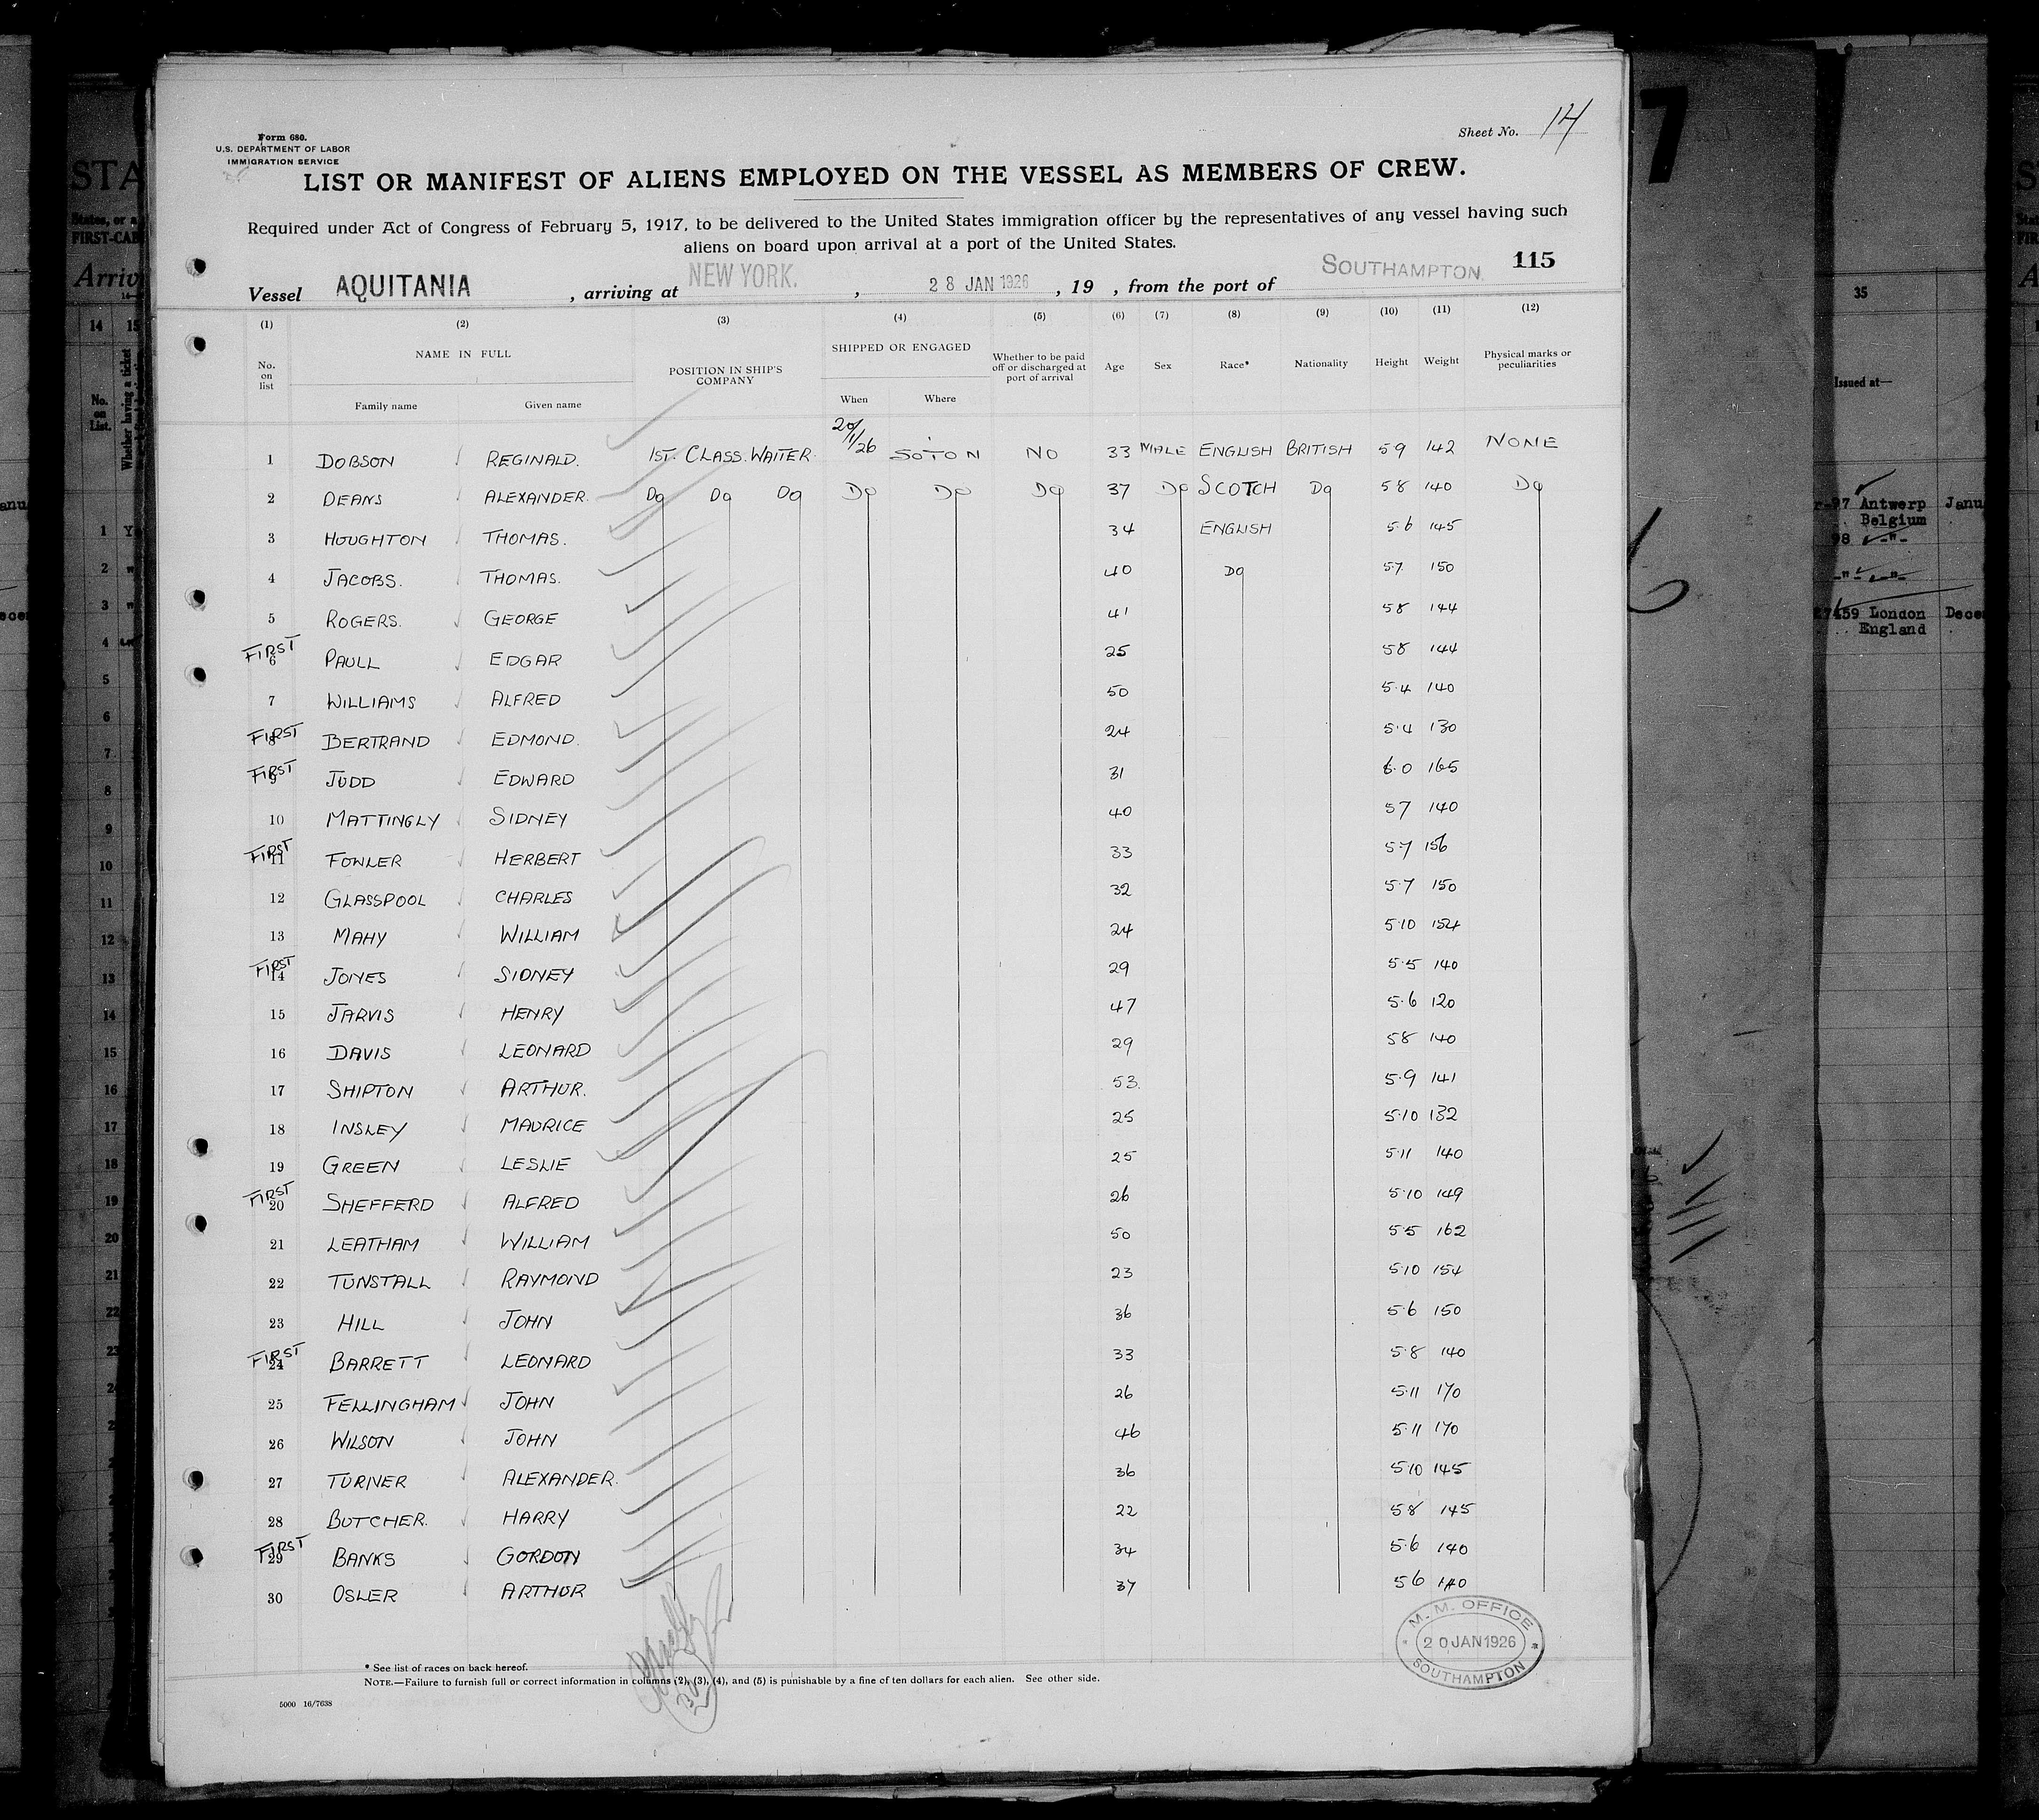 Form 680.
U.S. DEPARTMENT OF LABOR
IMMIGRATION SERVICE
Sheet No. 14
LIST OR MANIFEST OF ALIENS EMPLOYED ON THE VESSEL AS MEMBERS OF CREW.
Required under Act of Congress of February 5, 1917, to be delivered to the United States immigration officer by the representatives of any vessel having such
aliens on board upon arrival at a port of the United States.
115
Vessel AQUITANIA , arriving at NEW YORK. , 28 JAN 1926 , 19 , from the port of SOUTHAMPTON
(1) (2) (3) (4) (5) (6) (7) (8) (9) (10) (11) (12)
No. on list NAME IN FULL Family name Given name POSITION IN SHIP'S COMPANY SHIPPED OR ENGAGED When Where Whether to be paid off or discharged at port of arrival Age Sex Race* Nationality Height Weight Physical marks or peculiarities
1 DOBSON REGINALD. 1ST. CLASS. WAITER. 20/1/26 SOTON NO 33 MALE ENGLISH BRITISH 5 9 142 NONE
2 DEANS ALEXANDER. Do Do Do Do Do Do 37 Do SCOTCH Do 5 8 140 Do
3 HOUGHTON THOMAS. 34 ENGLISH 5.6 145
4 JACOBS. THOMAS. 40 Do 5.7. 150
5 ROGERS. GEORGE 41 5 8 144
FIRST 6 PAULL EDGAR 25 5 8 144
7 WILLIAMS ALFRED 50 5.4 140
FIRST 8 BERTRAND EDMOND. 24 5.4 130
FIRST 9 JUDD EDWARD 31 6.0 165
10 MATTINGLY SIDNEY 40 5 7 140
FIRST 11 FOWLER HERBERT 33 5.7 156
12 GLASSPOOL CHARLES 32 5.7 150
13 MAHY WILLIAM 24 5.10 154
FIRST 14 JONES SIDNEY 29 5.5 140
15 JARVIS HENRY 47 5.6 120
16 DAVIS LEONARD 29 5 8 140
17 SHIPTON ARTHUR. 53. 5.9 141
18 INSLEY MAURICE 25 5.10 132
19 GREEN LESLIE 25 5.11 140
FIRST 20 SHEFFERD ALFRED 26 5.10 149
21 LEATHAM WILLIAM 50 5.5 162
22 TUNSTALL RAYMOND 23 5.10 154
23 HILL JOHN 36 5.6 150
FIRST 24 BARRETT LEONARD 33 5.8 140
25 FELLINGHAM JOHN 26 5.11 170
26 WILSON JOHN 46 5.11 170
27 TURNER ALEXANDER. 36 5.10 145
28 BUTCHER. HARRY 22 5 8 145
FIRST 29 BANKS GORDON 34 5.6 140
30 OSLER ARTHUR 37 5 6 140
M. M. OFFICE
20 JAN 1926
SOUTHAMPTON
* See list of races on back hereof.
NOTE.—Failure to furnish full or correct information in columns (2), (3), (4), and (5) is punishable by a fine of ten dollars for each alien. See other side.
5000 16/7638
7
STA
States, or a
FIRST-CAB
Arriv
14 15
No. on List.
Whether having a ticket
35
Issued at—
97 Antwerp Janu
Belgium
98 -"-
-"- -"-
27459 London Dece
England